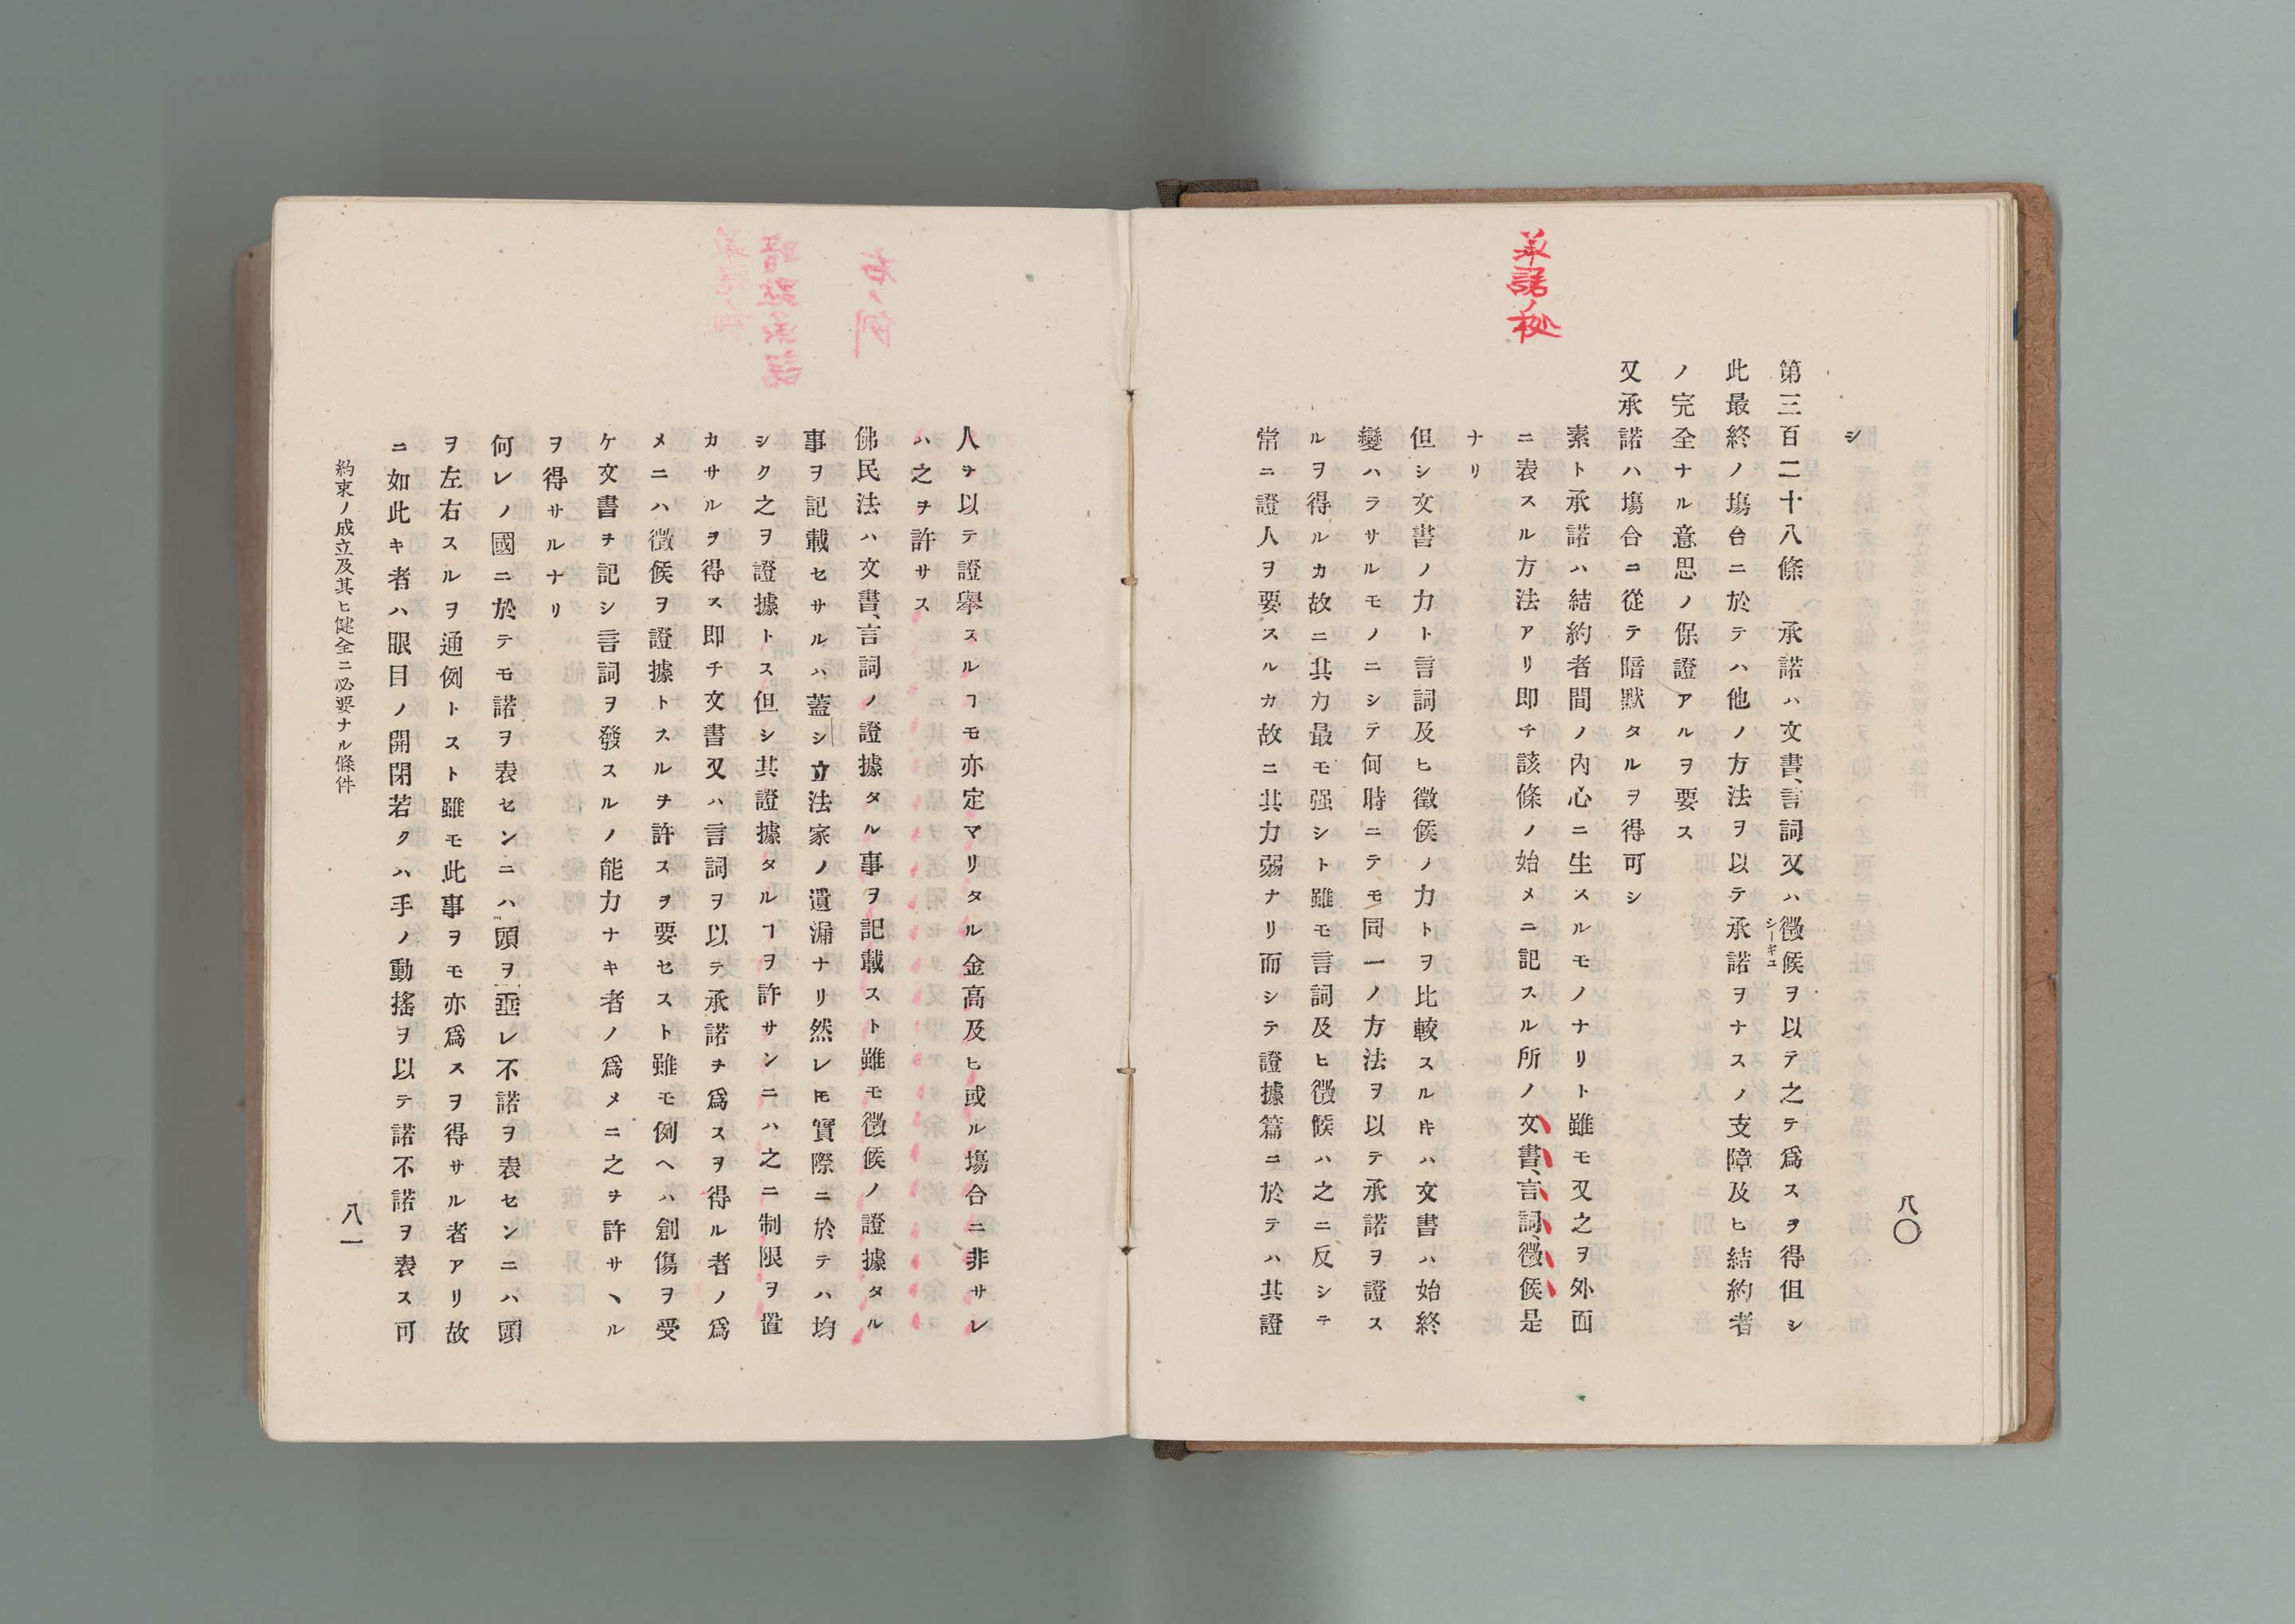 承諾ノ
八〇
シ
第三百二十八條　承諾ハ文書、言詞又ハ徵候ヲ以テ之テ爲スヲ得但シ
シーギユ
此最終ノ塲合ニ於テハ他ノ方法ヲ以テ承諾ヲナスノ支障及ヒ結約者
ノ完全ナル意思ノ保證アルヲ要ス
又承諾ハ塲合ニ從テ暗默タルヲ得可シ
素ト承諾ハ結約者間ノ內心ニ生スルモノナリト雖モ又之ヲ外面
ニ表スル方法アリ即チ該條ノ始メニ記スル所ノ文書、言詞、徵候是
ナリ
但シ文書ノ力ト言詞及ヒ徵候ノ力トヲ比較スルキハ文書ハ始終
變ハラサルモノニシテ何時ニテモ同一ノ方法ヲ以テ承諾ヲ證ス
ルヲ得ルカ故ニ其力最モ强シト雖モ言詞及ヒ徵候ハ之ニ反シテ
常ニ證人ヲ要スルカ故ニ其力弱ナリ而シテ證據篇ニ於テハ其證
人ヲ以テ證擧スルヿモ亦定マリタル金高及ヒ或ル塲合ニ非サレ
ハ之ヲ許サス
佛民法ハ文書、言詞ノ證據タル事ヲ記載スト雖モ徵候ノ證據タル
事ヲ記載セサルハ蓋シ立法家ノ遺漏ナリ然レ𪜈實際ニ於テハ均
シク之ヲ證據トス但シ其證據タルヿヲ許サンニハ之ニ制限ヲ置
カサルヲ得ス即チ文書又ハ言詞ヲ以テ承諾ヲ爲スヲ得ル者ノ爲
メニハ徵候ヲ證據トスルヲ許スヲ要セスト雖モ例ヘハ創傷ヲ受
ケ文書ヲ記シ言詞ヲ發スルノ能力ナキ者ノ爲メニ之ヲ許サヽル
ヲ得サルナリ
何レノ國ニ於テモ諾ヲ表センニハ頭ヲ垂レ不諾ヲ表センニハ頭
ヲ左右スルヲ通例トスト雖モ此事ヲモ亦爲スヲ得サル者アリ故
ニ如此キ者ハ眼目ノ開閉若クハ手ノ動搖ヲ以テ諾不諾ヲ表ス可
約束ノ成立及其ヒ健全ニ必要ナル條件
八一